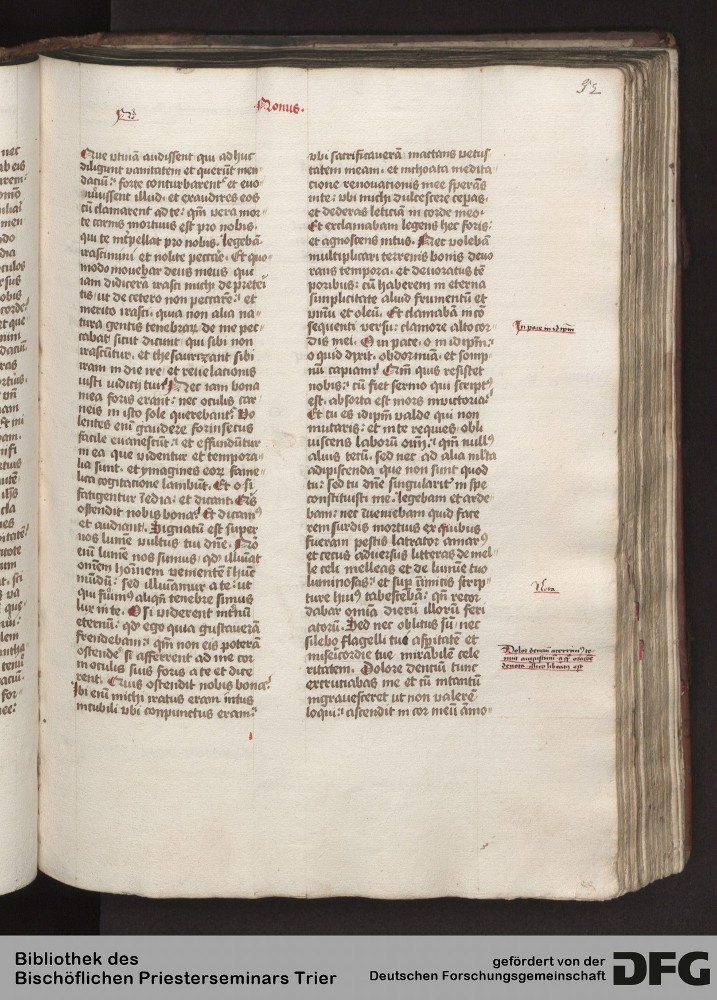 92
Nonus.
Que utinā audissent qui adhuc
diligunt vanitatem et querūt men
daciū: forte conturbarent et euo
muissent illud. et exaudires eos
cū clamarent ad te: qm̄ vera mor
te carnis mortuus est pro nobis.
qui te int̄pellat pro nobis. legebā
irascimini et nolite peccare. Et quo
modo mouebar deus meus qui
iam didicerā irasci michi de preteri
tis: ut de cetero non peccarē: et
merito irasci. quia non alia na
tura gentis tenebrarꝝ de me pec
cabat: sicut dicunt qui sibi non
irascūtur. et thesaurizant sibi
iram in die ire et reuelacionis
iusti iudicij tui: Nec iam bona
mea foris erant: nec oculis car
neis in isto sole querebant: Vo
lentes enī gaudere forinsecus
facile euanescūt: et effundūtur
in ea que videntur et tempora
lia sunt. et ymagines eorꝝ fame
lica cogitacione lambiūt. Et o si
fatigentur īedia: et dicant. Quis
ostendit nobis bona: Et dicam᷒
et audiant. Signatū est super
nos lumē vultus tui dn̄e. Nō
enī lumē nos sumus. qd' illuīat
omnem hominē venientē ī hūc
mūdū: sed illuīamur a te: ut
qui fuim᷒ aliqn̄ tenebre simus
lux in te. O si viderent int'nū
eternū: qd' ego quia gustauerā
frendebam: qm̄ non eis poterā
ostende' si afferrent ad me cor
in oculis suis foris a te et dice
rent. Quis ostendit nobis bona:
Ibi enī michi iratus eram intus
in cubili ubi conpunctus eram:
ubi sacrificauerā mactans vetus
tatem meam. et inchoata medita
cione renouationis mee sperās
in te: ubi michi dulcescere cepas.
et dederas leticiā in corde meo.
Et exclamabam legens hec foris:
et agnoscens intus. Nec volebā
multiplicari terrenis bonis deuo
rans tempora. et deuoratus tē
poribus: cū haberem in eterna
simplicitate aliud frumentū et
vinū et oleū. Et clamabā in cō
sequenti versu: clamore alto cor
dis mei. O in pace. o in idipm̄:
o quid dixit. obdormiā. et somp
nū capiam: Qm̄ quis resistet
nobis: cū fiet sermo qui script᷒
est. absorta est mors in victoria:
Et tu es idipm̄ valde qui non
mutaris: et in te requies obli
uiscens laborū om̄: qm̄ null᷒
alius tecū. sed nec ad alia m̄lta
adipiscenda que non sunt quod
tu: sed tu dn̄e singularit' in spe
constituisti me. legebam et arde
bam: nec īueniebam quid face
rem surdis mortuis ex quibus
fueram pestis latrator amar᷒
et cecus aduersus litteras de mel
le celi melleas et de lumīe tuo
luminosas: et sup inimicis scrip
ture hui᷒ tabescebā: qn̄ recor
dabar omīa dierū illorū feri
atorū. Sed nec oblitus sū: nec
silebo flagelli tui asp̄itatē et
misericordie tue mirabilē cele
ritatem. Dolore dentiū tunc
extruciabas me et cū in tantū
ingrauesceret ut non valerē
loqui: ascendit in cor meū āmo
In pace in idipm̄
Nota
Bibliothek des
Bischöflichen Priesterseminars Trier
gefördert von der
Deutschen Forschungsgemeinschaft
DFG